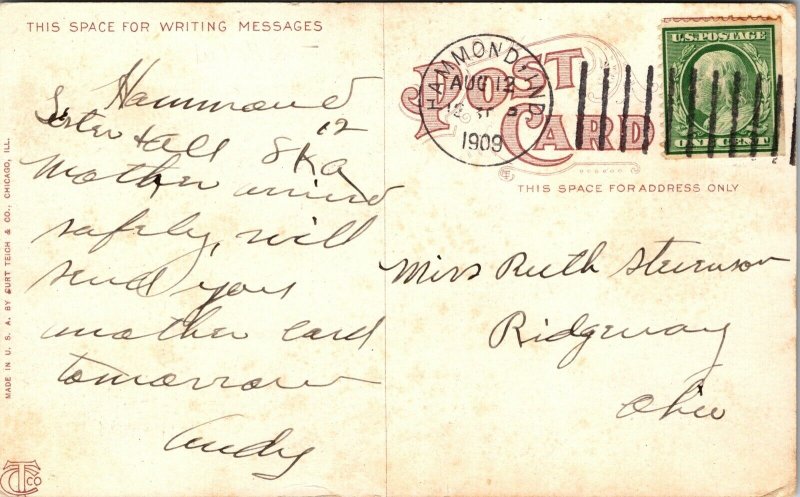 THIS SPACE FOR WRITING MESSAGES
Hammond
Sister
Mother arrived
safely, will
send you
another card
tomorrow
Andy
HAMMOND, IND.
AUG 12
1909
POST CARD
U.S. POSTAGE
ONE CENT
THIS SPACE FOR ADDRESS ONLY
Miss Ruth Stevenson
Ridgeway
Ohio
MADE IN U. S. A. BY CURT TEICH & CO., CHICAGO, ILL.
CTCO